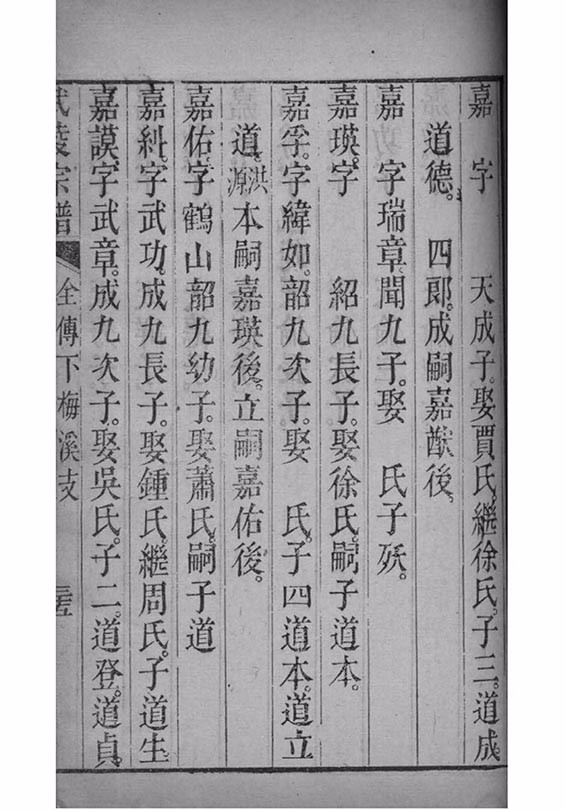 嘉　字　　天成子。娶賈氏。繼徐氏。子三。道成
道德。　四郎。成嗣嘉猷後。
嘉　字瑞章。聞九子。娶　氏子殀。
嘉瑛。字　　紹九長子。娶徐氏。嗣子道本。
嘉孚。字緯如。韶九次子。娶　氏。子四道本。道立
道。洪源本嗣嘉瑛後。立嗣嘉佑後。
嘉佑。字鶴山韶九幼子。娶蕭氏。嗣子道
嘉糾。字武功。成九長子。娶鍾氏。繼周氏。子道生
嘉謨。字武章。成九次子。娶吳氏。子二。道登。道貞。
武陵宗譜　仝傳下梅溪支